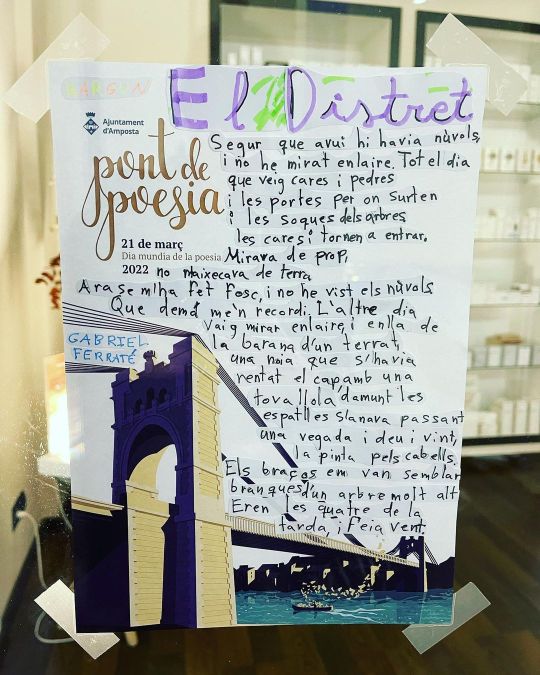 El Distret
Ajuntament
d'Amposta
pont de
poesia
21 de març
Dia mundia de la poesia
2022
Segur que avui hi havia núvols,
i no he mirat enlaire. Tot el dia
que veig cares i pedres
i les portes per on surten
i les soques dels arbres
les cares i tornen a entrar.
Mirava de prop,
no m'aixecava de terra.
Ara se m'ha fet fosc, i no he vist els núvols
Que demà me'n recordi. L'altre dia
vaig mirar enlaire, i enllà de
la barana d'un terrat,
una noia que s'havia
rentat el cap amb una
tovallola damunt les
espatlles s'anava passant
una vegada i deu i vint,
la pinta pels cabells.
Els braços em van semblar
branques d'un arbre molt alt
Eren les quatre de la
tarda, i feia vent.
GABRIEL
FERRATÉ